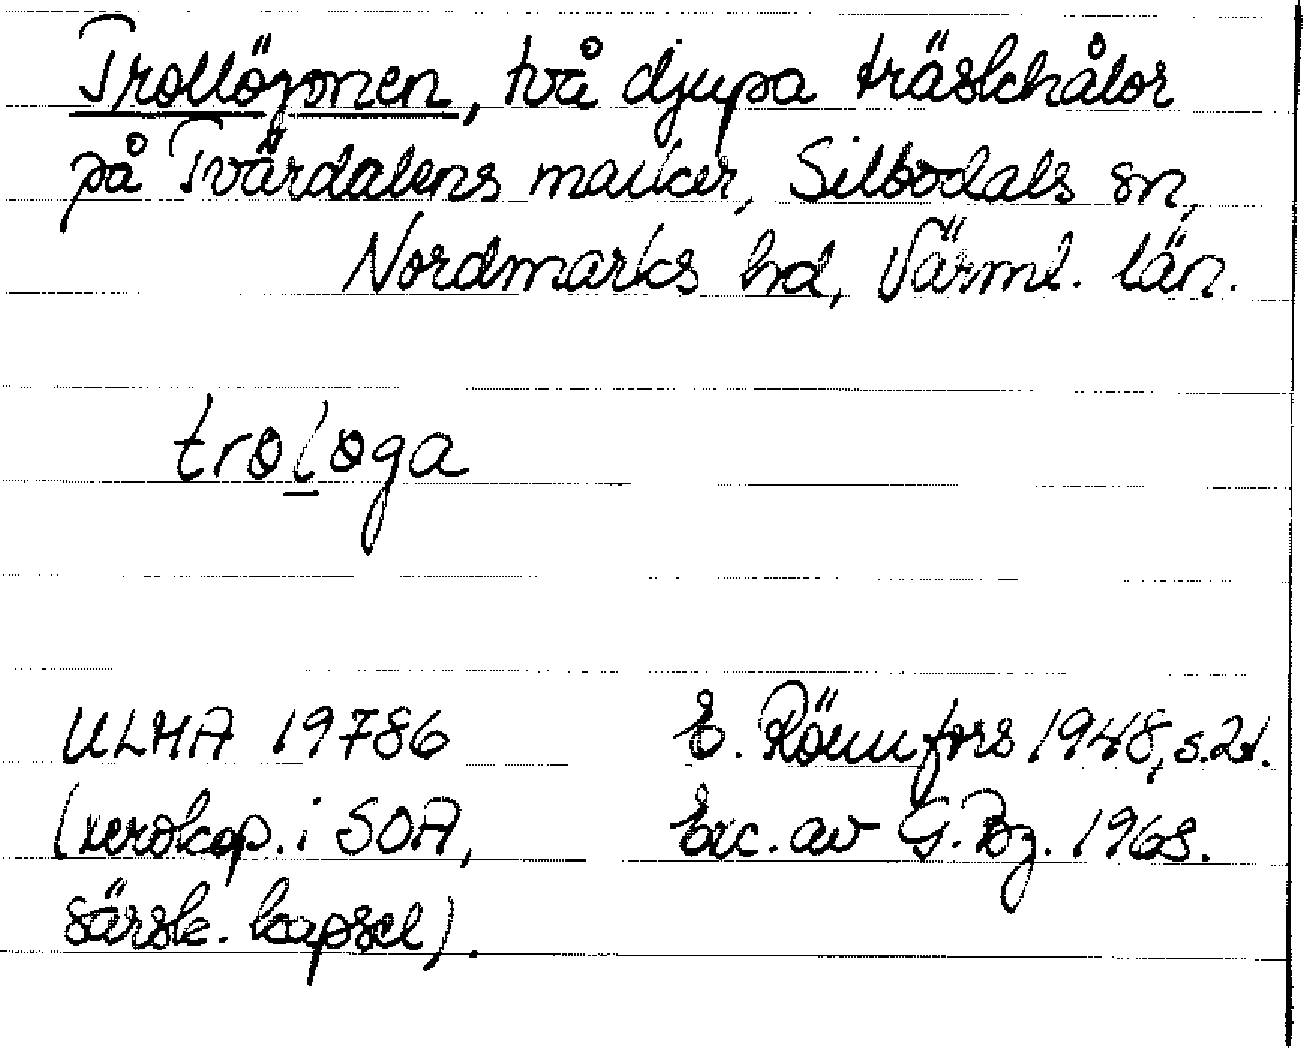 Trollögonen, två djupa träskhålor
på Tvärdalens marker, Silbodals sn,
Nordmarks hd, Värml. län.
trologa
ULMA 19786
(xerokop. i SOA,
särsk. kapsel).
E. Rönnfors 1948, s.21.
Exc. av G. Bz. 1968.